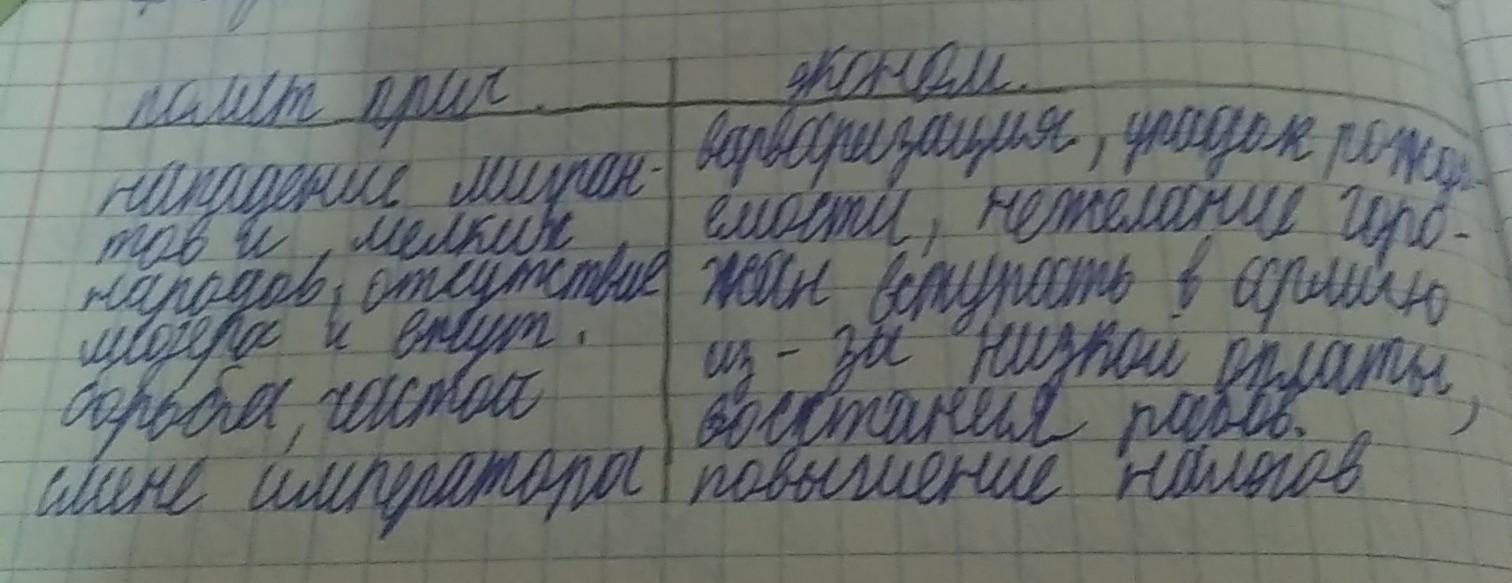 полит прич.
нападение мигран-
тов и мелких
народов, отсутствие
лидера и внут.
борьба, частой
смене императора
эконом.
варваризация, упадок рожда-
емости, нежелание горо-
жан вступать в армию
из-за низкой оплаты,
восстания рабов.
повышение налогов